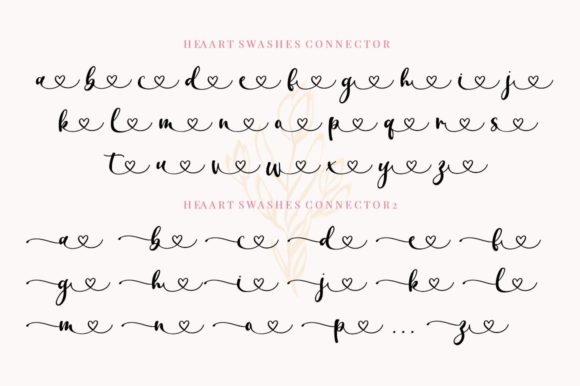 HEAART SWASHES CONNECTOR
a♡ b♡ c♡ d♡ e♡ f♡ g♡ h♡ i♡ j♡
k♡ l♡ m♡ n♡ a♡ p♡ q♡ r♡ s♡
t♡ u♡ v♡ w♡ x♡ y♡ z♡
HEAART SWASHES CONNECTOR2
a♡ b♡ c♡ d♡ e♡ f♡
g♡ h♡ i♡ j♡ k♡ l♡
m♡ n♡ a♡ p♡ ... z♡